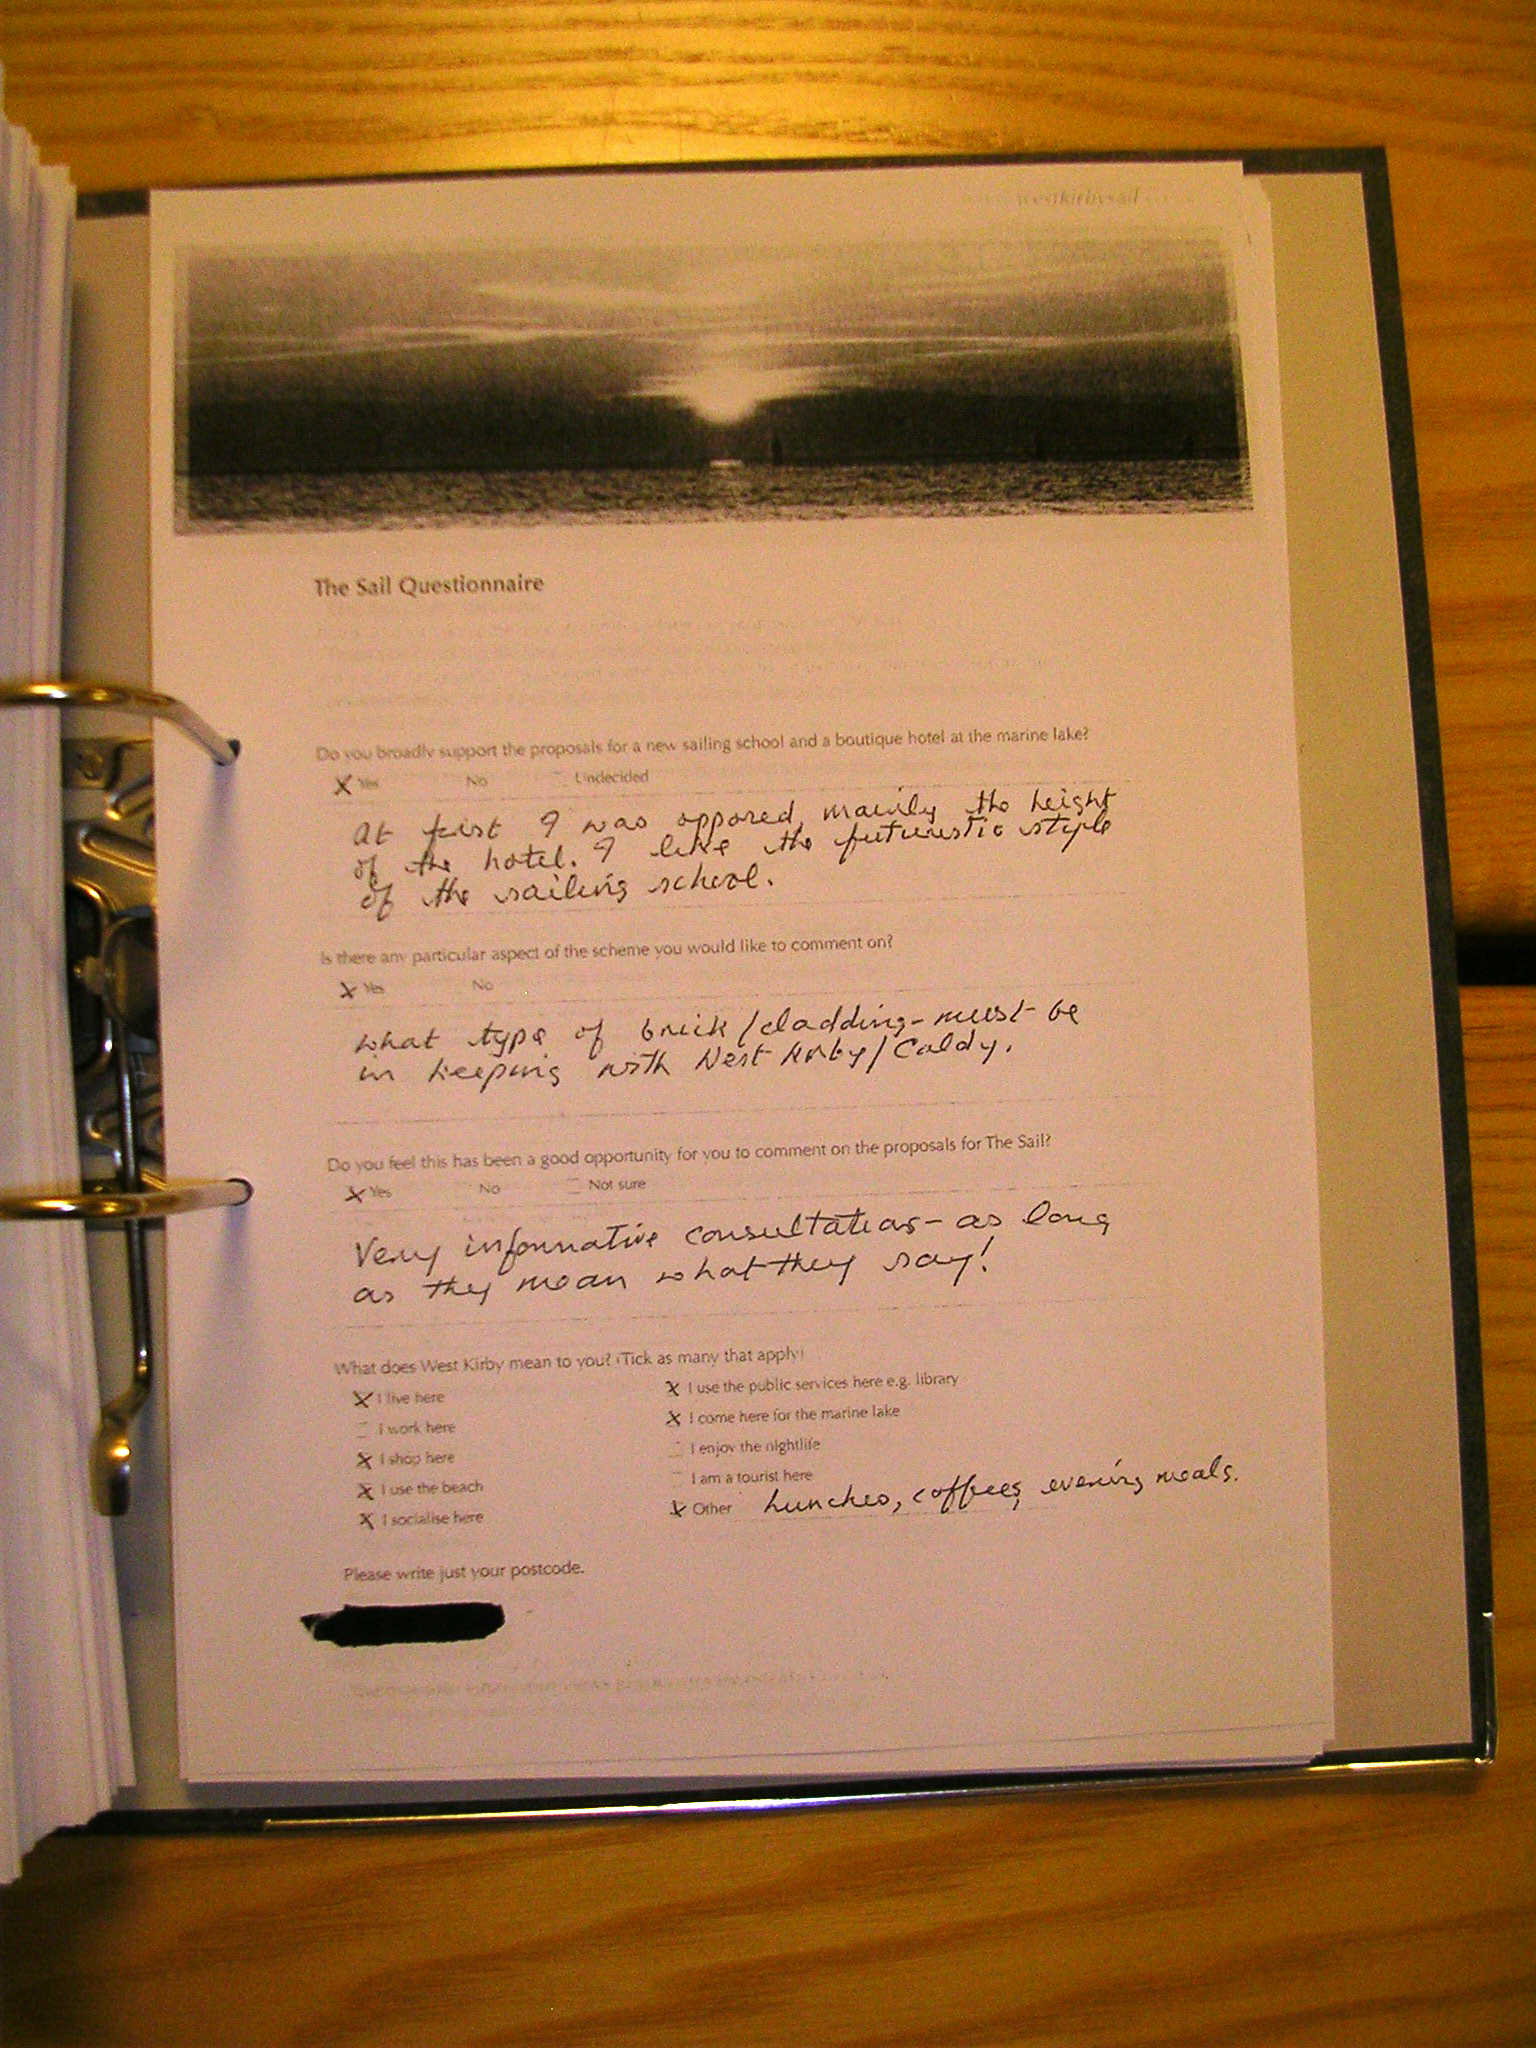 westkirbysail
The Sail Questionnaire
Do you broadly support the proposals for a new sailing school and a boutique hotel at the marine lake?
X Yes No Undecided
At first I was opposed, mainly the height
of the hotel. I like the futuristic style
of the sailing school.
Is there any particular aspect of the scheme you would like to comment on?
X Yes No
what type of brick/cladding - must be
in keeping with West Kirby/Caldy.
Do you feel this has been a good opportunity for you to comment on the proposals for The Sail?
X Yes No Not sure
Very informative consultation - as long
as they mean what they say!
What does West Kirby mean to you? (Tick as many that apply)
X I live here
I work here
X I shop here
X I use the beach
X I socialise here
X I use the public services here e.g. library
X I come here for the marine lake
I enjoy the nightlife
I am a tourist here
X Other lunches, coffees, evening meals.
Please write just your postcode.